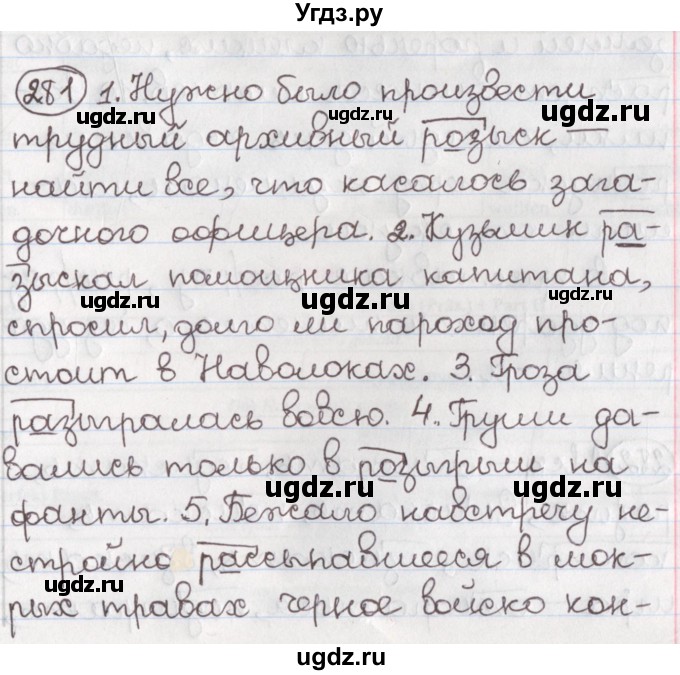 Угдз.ру
281 1. Нужно было произвести
ugdz.ru ugdz.ru
трудный архивный розыск —
найти все, что касалось зага-
дочного офицера. 2. Кузьмин ра-
ugdz.ru ugdz.ru
зыскал помощника капитана,
спросил, долго ли пароход про-
стоит в Наволоках. 3. Гроза
ugdz.ru
разыгралась вовсю. 4. Груши да-
вались только в розыгрыш на
ugdz.ru
фанты. 5. Бежало навстречу не-
стройно рассыпавшееся в мок-
ugdz.ru ugdz.ru
рых травах черное войско кон-
ugdz.ru